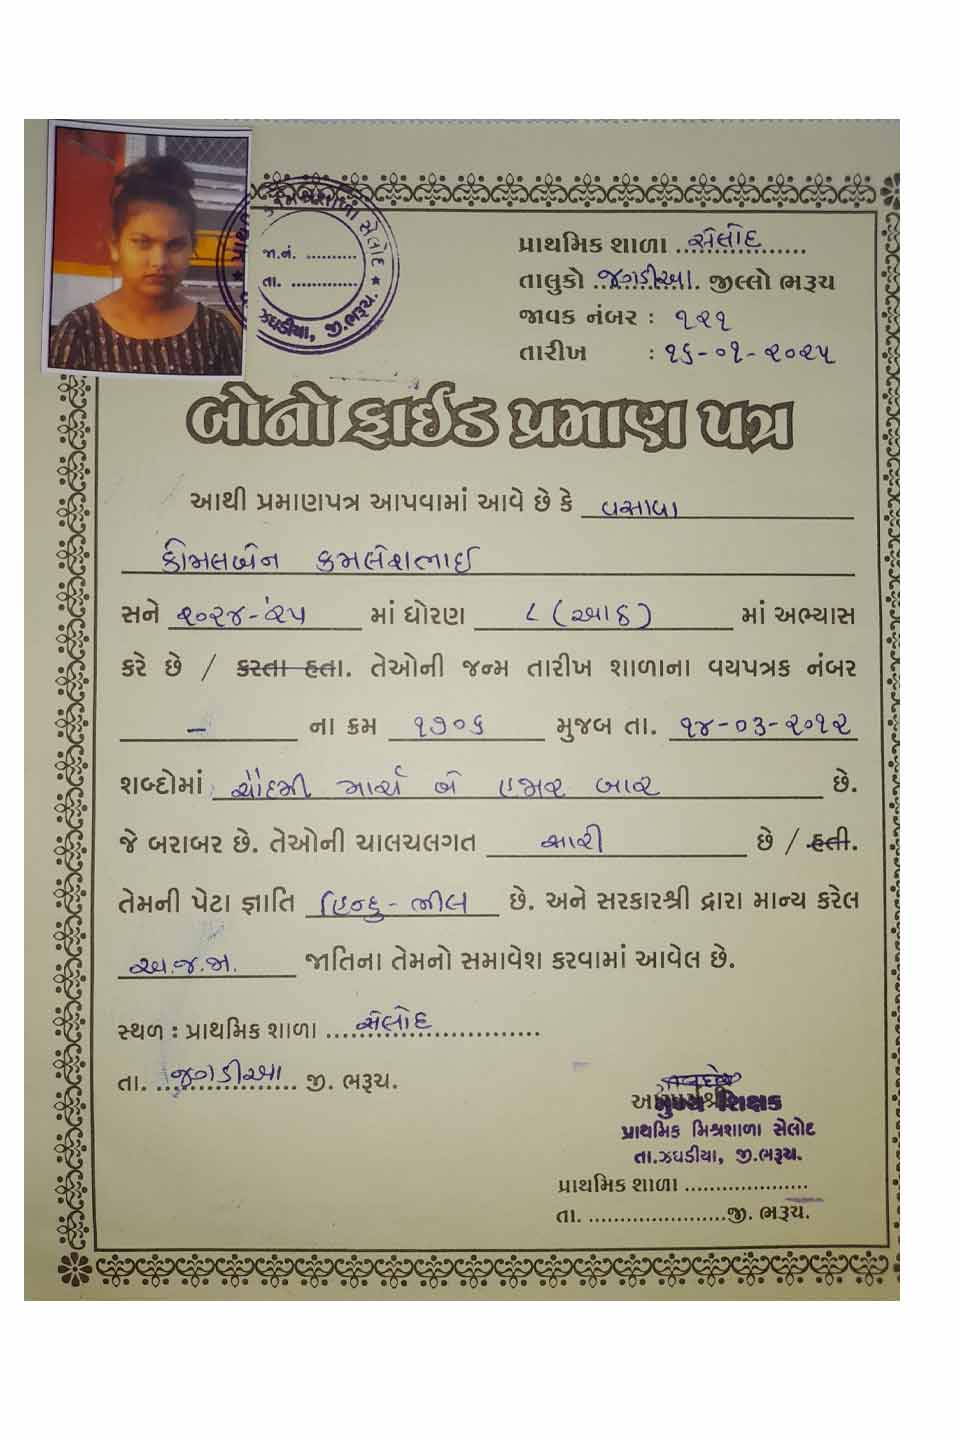 પ્રાથમિક શાળા સેલોદ
તાલુકો જગડીઆ. જીલ્લો ભરૂચ
જાવક નંબર : ૧૨૧
તારીખ : ૧૬-૦૧-૨૦૨૫
સેલોદ
જા.નં. ...........
તા. .............
ઝઘડીયા, જી.ભરૂચ.
બોનોફાઈડ પ્રમાણ પત્ર
આથી પ્રમાણપત્ર આપવામાં આવે છે કે વસાવા
કોમલબેન કમલેશભાઈ
સને ૨૦૨૪-'૨૫ માં ધોરણ ૮ (આઠ) માં અભ્યાસ
કરે છે / કરતા હતા. તેઓની જન્મ તારીખ શાળાના વયપત્રક નંબર
- ના ક્રમ ૧૭૦૬ મુજબ તા. ૧૪-૦૩-૨૦૧૨
શબ્દોમાં ચૌદમી માર્ચ બે હજાર બાર છે.
જે બરાબર છે. તેઓની ચાલચલગત સારી છે / હતી.
તેમની પેટા જ્ઞાતિ હિન્દુ-ભીલ છે. અને સરકારશ્રી દ્વારા માન્ય કરેલ
અ.જ.જા. જાતિના તેમનો સમાવેશ કરવામાં આવેલ છે.
સ્થળ : પ્રાથમિક શાળા સેલોદ
તા. જગડીઆ જી. ભરૂચ.
મુખ્ય શિક્ષક
પ્રાથમિક મિશ્રશાળા સેલોદ
તા.ઝઘડીયા, જી.ભરૂચ.
પ્રાથમિક શાળા ....................
તા. .......................જી. ભરૂચ.